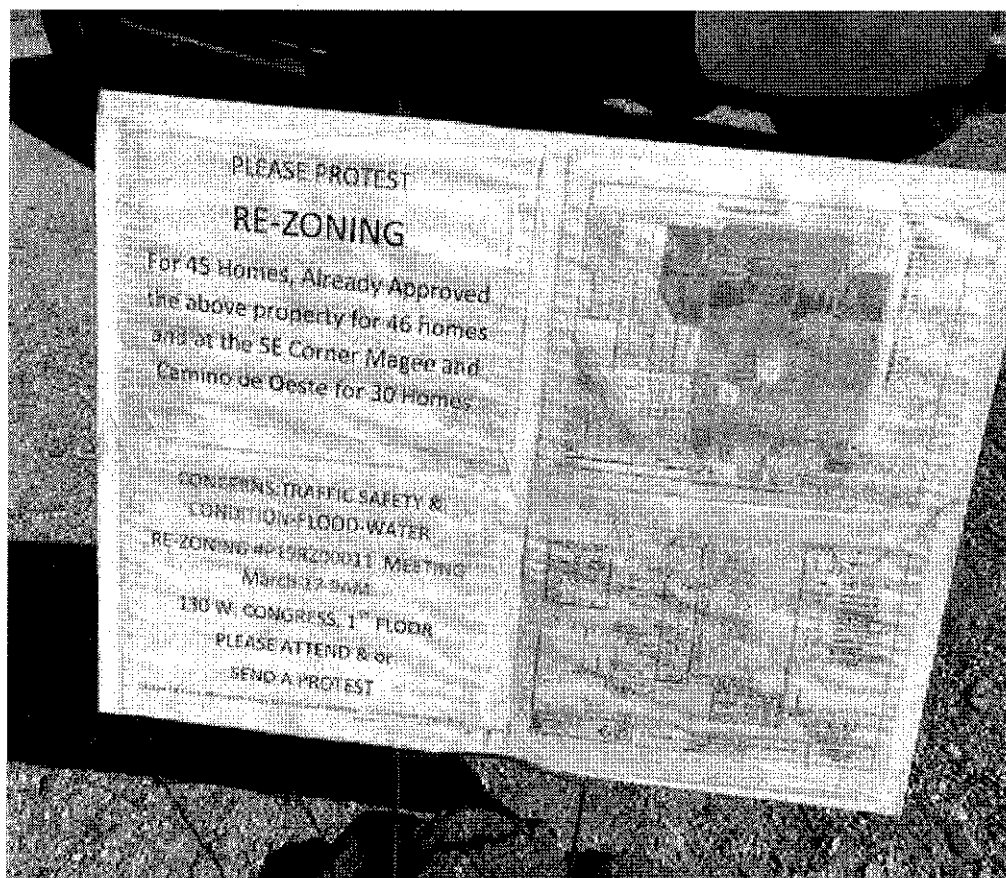 PLEASE PROTEST
RE-ZONING
For 45 Homes, Already Approved
the above property for 46 homes
and at the SE Corner Magee and
Camino de Oeste for 30 Homes
CONCERNS:TRAFFIC SAFETY &
CONDITION-FLOOD-WATER
RE-ZONING #P19RZ00011 MEETING
March 17 9AM
130 W. CONGRESS, 1ST FLOOR
PLEASE ATTEND & or
SEND A PROTEST